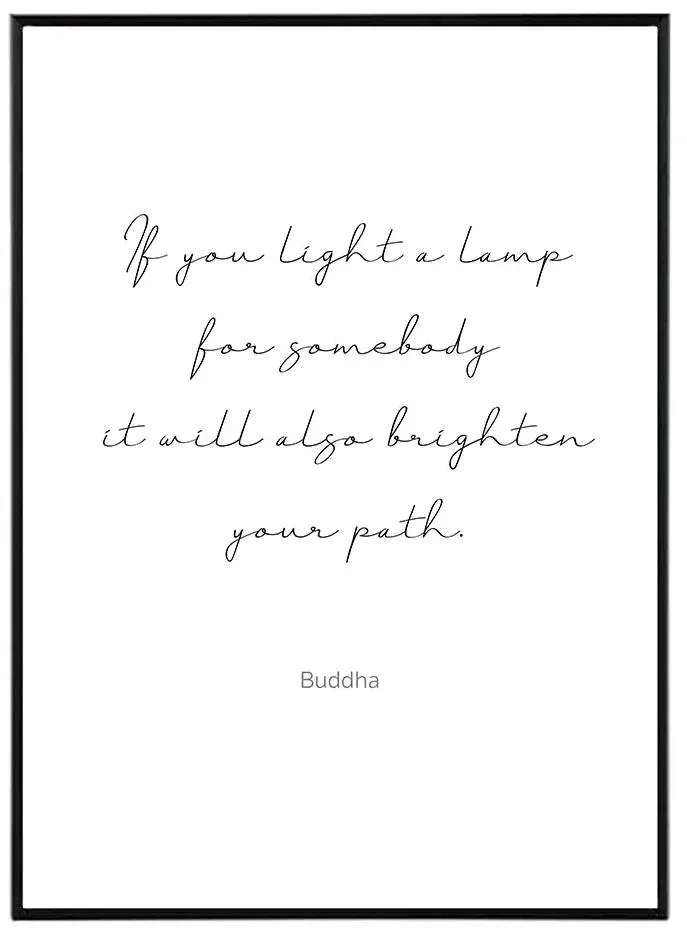 If you light a lamp
for somebody
it will also brighten
your path.
Buddha